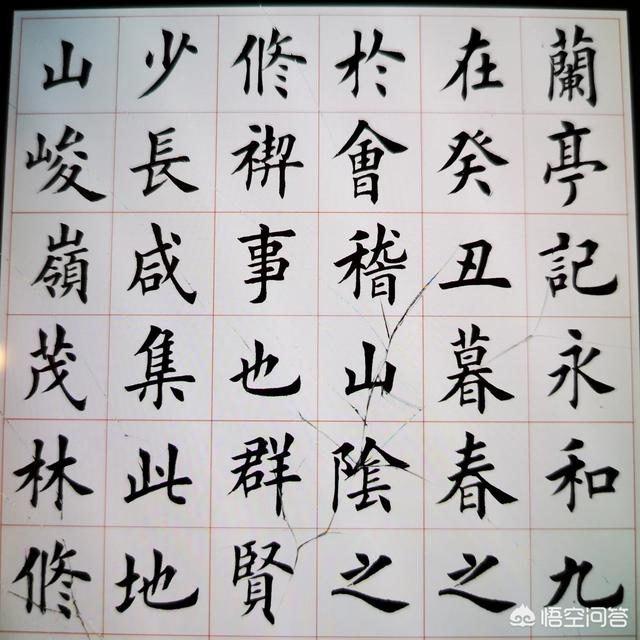 蘭亭記永和九
在癸丑暮春之
於會稽山陰之
修禊事也群賢
少長咸集此地
山峻嶺茂林修
悟空问答